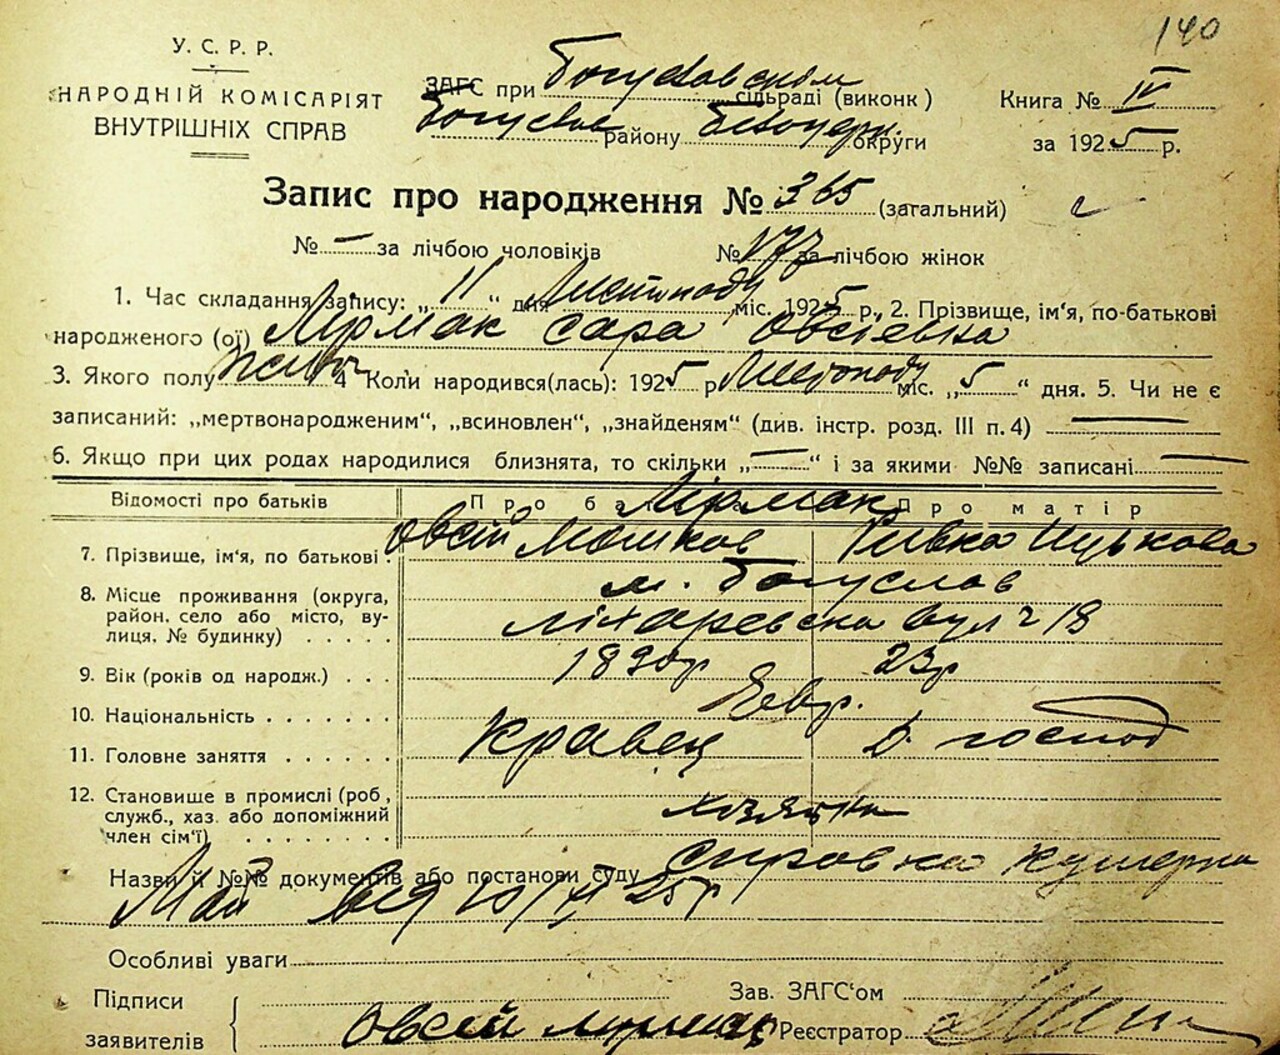 140
У. С. Р. Р.
НАРОДНІЙ КОМІСАРІЯТ
ВНУТРІШНІХ СПРАВ
ЗАГС при Богуславском сільраді (виконк)
району округи
Книга № IV
за 1925 р.
Запис про народження № 365 (загальний)
№ — за лічбою чоловіків № 177 за лічбою жінок
1. Час складання запису: „11“ дня Листопаду міс. 1925 р., 2. Прізвище, ім'я, по-батькові
народженого (ої) Лірмак Сара Овсієвна
3. Якого полу жіноч 4 Коли народився(лась): 1925 р Листопаду міс. „5“ дня. 5. Чи не є
записаний: „мертвонародженим“, „всиновлен“, „знайденям“ (див. інстр. розд. III п. 4) —
6. Якщо при цих родах народилися близнята, то скільки „—“ і за якими №№ записані —
Відомості про батьків Про ба Лірмак Про матір
7. Прізвище, ім'я, по батькові Овсій Мошков Ривка Ицькова
8. Місце проживання (округа, район. село або місто, вулиця. № будинку) м. Богуслав
вул 18
9. Вік (років од народж.) 1890р 23р
10. Національність Евр.
11. Головне заняття Кравец Д. господ
12. Становище в промислі (роб, служб., хаз. або допоміжний член сім'ї) хозяїн
Назви й №№ документів або постанови суду
від 10/XI 25р
Особливі уваги
Підписи заявителів Овсей
Зав. ЗАГС'ом
Реєстратор